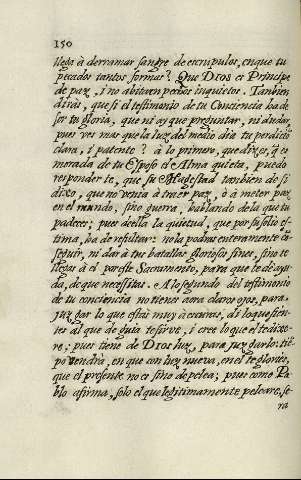 150
llega à derramar sangre de escrupulos, en que tu
pecados tantos formas? Que DIOS es Principe
de paz, i no abita en pechos inquietos. Tambien
dirás, que si el testimonio de tu Conciencia ha de
ser tu gloria, que ni ay que preguntar, ni dudar,
pues ves mas que la luz del medio dia tu perdicion
clara, i patente? à lo primero, que dizes, q̃ es
morada de tu Esposo el Alma quieta, puedo
responderte, que su Magestad tambien de si
dixo, que no venia à traer paz, ò à meter paz
en el mundo, sino guerra, hablando de la que tu
padeces; pues de ella la quietud, que por su
tima, ha de resultar: no la podras enteramente
seguir, ni dar à tus batallas gloriosos fines, sino te
llegas à el Sacramento, para que te de ayu-
da, de que necessitas. A lo segundo del testimonio
de tu conciencia no tienes aora claros ojos, para
juzgar lo que estás muy à escuras, di lo que sin-
ties al que de guia te sirve, i cree lo que el te dixe-
re; pues tiene de DIOS luz, para juzgarlo: tiẽ-
po vendra, en que con luz nueva, en el te glories,
que el presente no es sino de pelea; pues como Pa-
blo afirma, solo el que legitimamente peleare, se-
ra